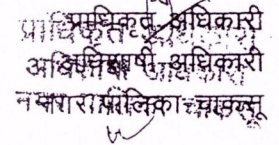 प्राधिकृत अधिकारी
अधिशाषी अधिकारी
नगरपालिका चाकसू